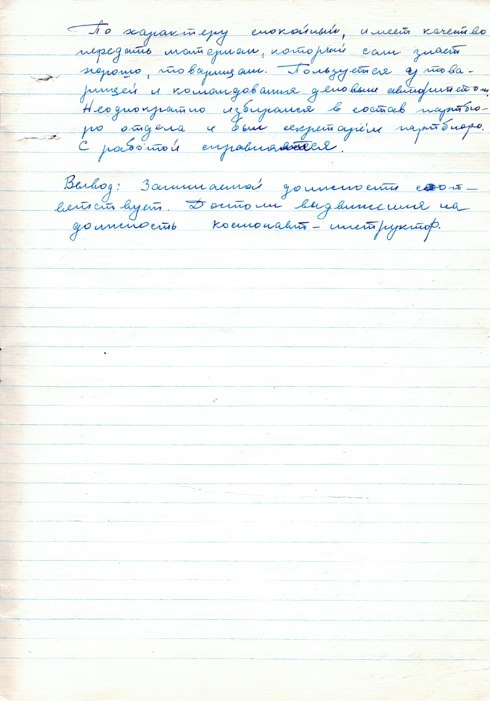 По характеру спокойный, имеет качество
передать материал, который сам знает
хорошо, товарищам. Пользуется у това-
рищей и командования деловым авторитетом.
Неоднократно избирался в состав партбю-
ро отдела и был секретарём партбюро.
С работой справлялся.
Вывод: Занимаемой должности соот-
ветствует. Достоин выдвижения на
должность космонавт-инструктор.